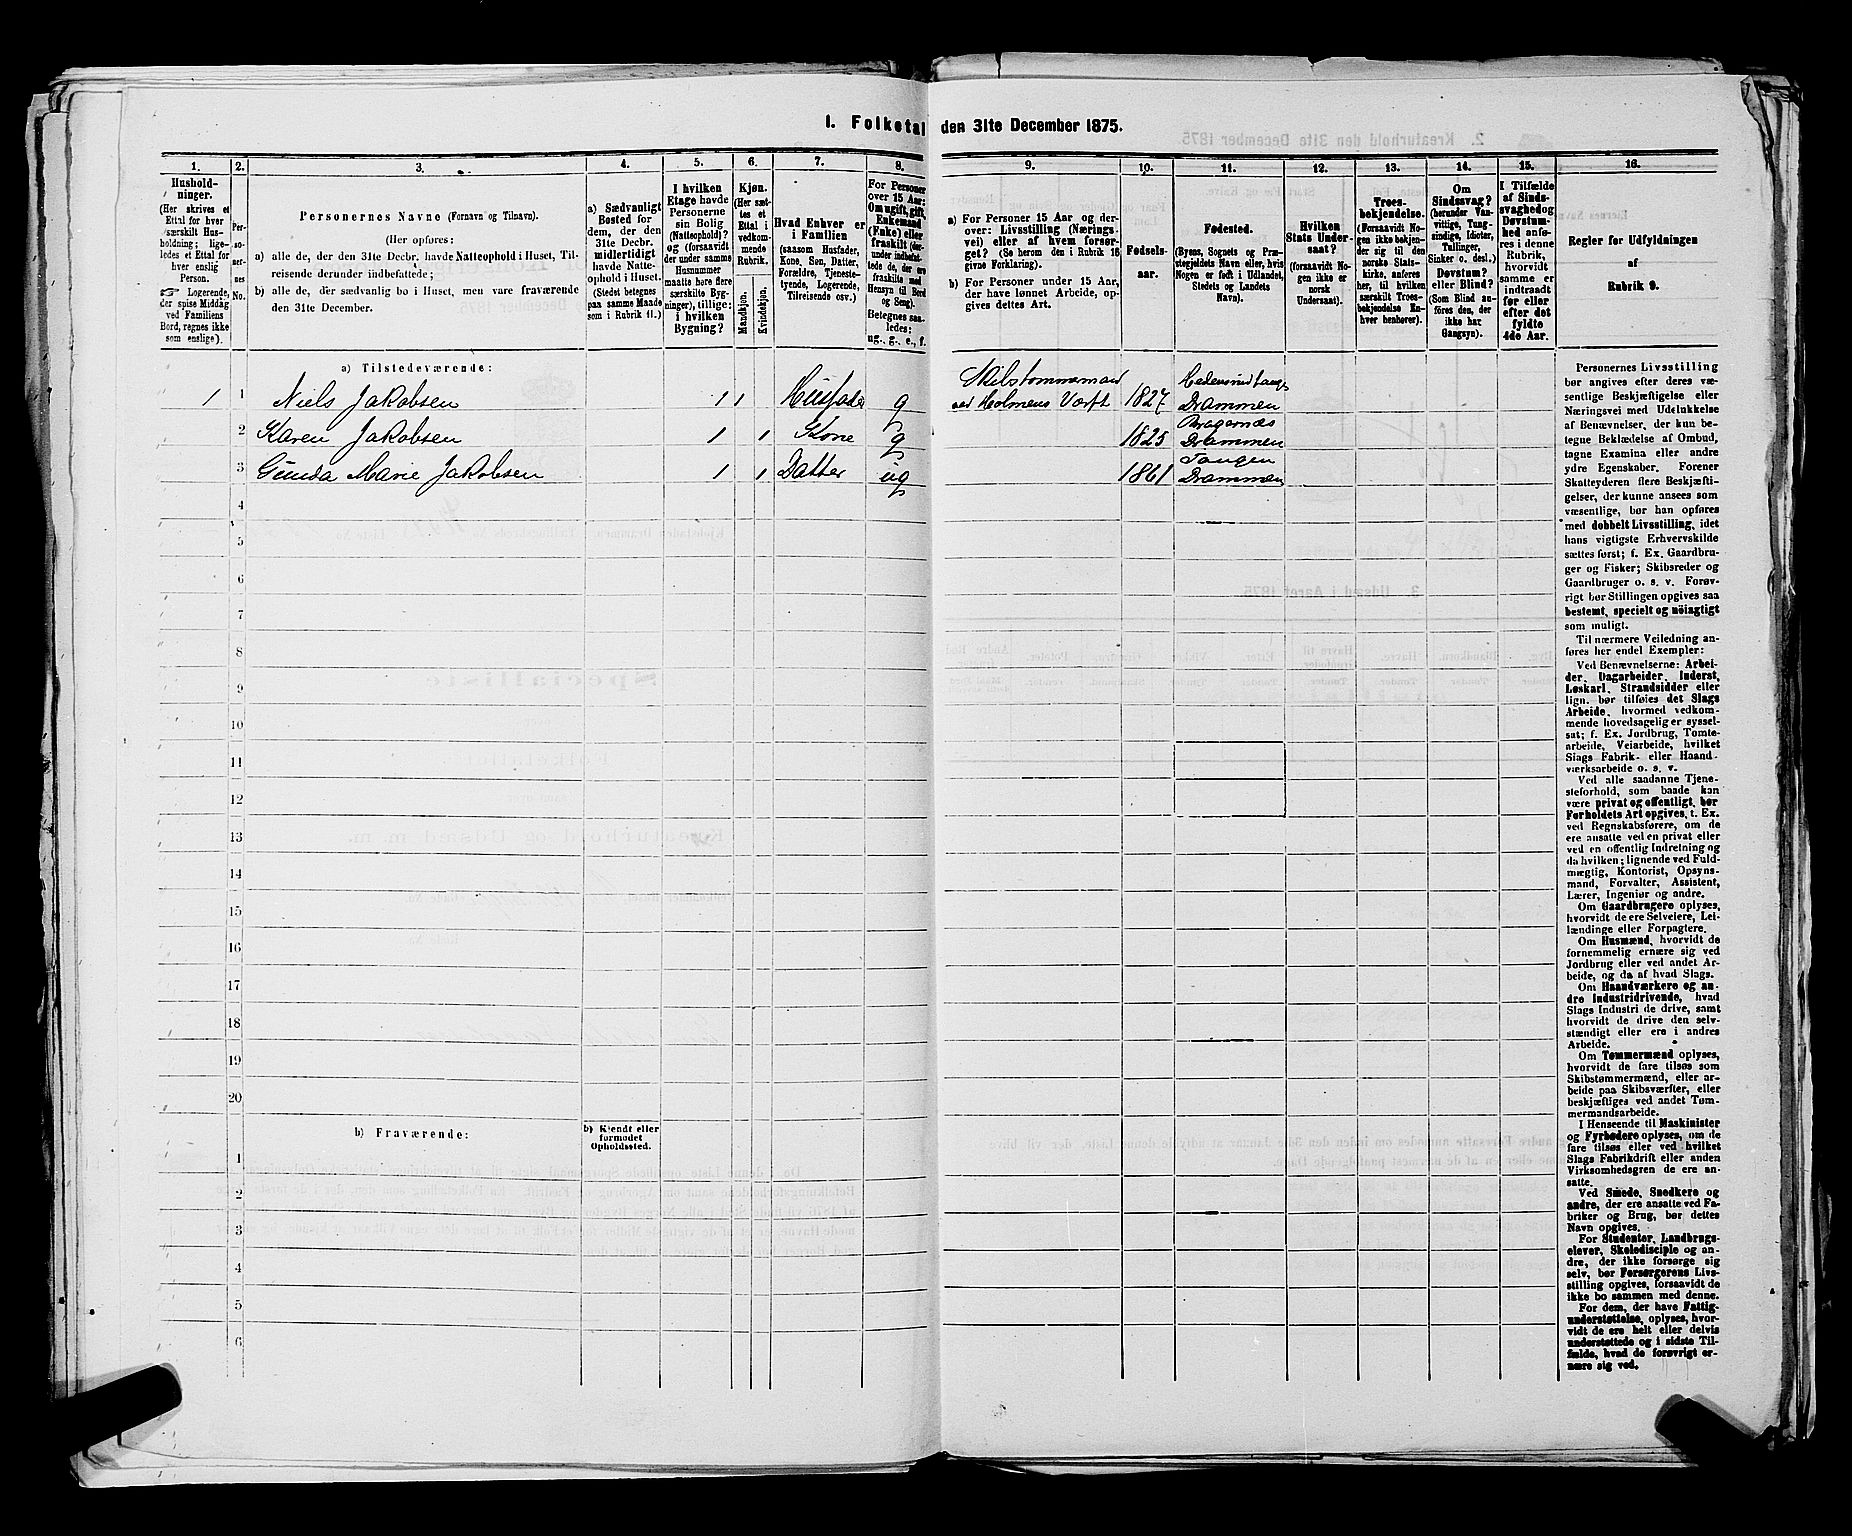 I. Folketal den 31te December 1875.
1. 2. 3. 4. 5. 6. 7. 8. 9. 10. 11. 12. 13. 14. 15. 16.
Hushold-
ninger.
(Her skrives et
Ettal for hver
særskilt Hus-
holdning; lige-
ledes et Ettal for
hver enslig
Person.
☞ Logerende,
der spise Middag
ved Familiens
Bord, regnes ikke
som enslige).
Per-
so-
ner-
nes
No.
Personernes Navne (Fornavn og Tilnavn).
(Her opføres:
a) alle de, der den 31te Decbr. havde Natteophold i Huset, Til-
reisende derunder indbefattede;
b) alle de, der sædvanlig bo i Huset, men vare fraværende
den 31te December.
a) Sædvanligt
Bosted for
dem, der den
31te Decbr.
midlertidigt
havde Natte-
ophold i Huset.
(Stedet betegnes
paa samme Maade
som i Rubrik 11.)
I hvilken
Etage havde
Personerne
sin Bolig
(Natteophold)?
og (forsaavidt
der under samme
Husnummer
maatte høre flere
særskilte Byg-
ninger), tillige:
i hvilken
Bygning?
Kjøn.
(Her sæt-
tes et
Ettal i
vedkom-
mende
Rubrik.
Mandkjøn.
Kvindekjøn.
Hvad Enhver er
i Familien
(saasom Husfader,
Kone, Søn, Datter,
Forældre, Tjeneste-
tyende, Logerende,
Tilreisende osv.)
For Personer
over 15 Aar:
Om ugift, gift,
Enkemand
(Enke) eller
fraskilt (der-
under indbefat-
tede de, der ere
fraskilte med
Hensyn til Bord
og Seng).
Betegnes saa-
ledes:
ug., g., e., f.
a) For Personer 15 Aar og der-
over: Livsstilling (Nærings-
vei) eller af hvem forsør-
get? (Se herom den i Rubrik 16
givne Forklaring).
b) For Personer under 15 Aar,
der have lønnet Arbeide, op-
gives dettes Art.
Fødsels-
aar.
Fødested.
(Byens, Sognets og Præ-
stegjeldets Navn eller, hvis
Nogen er født i Udlandet,
Stedets og Landets
Navn).
Hvilken
Stats Under-
saat?
(forsaavidt No-
gen ikke er
norsk
Undersaat).
Troes-
bekjendelse.
(Forsaavidt No-
gen ikke bekjen-
der sig til den
norske Stats-
kirke, anføres
her, til hvilken
særskilt Troes-
bekjendelse En-
hver henhører).
Om
Sindssvag?
(herunder Van-
vittige, Tung-
sindige, Idioter,
Tullinger,
Sinker o. desl.)
Døvstum?
eller Blind?
(Som Blind an-
føres den, der
ikke har
Gangsyn).
I Tilfælde
af Sinds-
svaghed og
Døvstum-
hed anfø-
res i denne
Rubrik,
hvorvidt
samme er
indtraadt
før eller
efter det
fyldte
4de Aar.
Regler for Udfyldningen
af
Rubrik 9.
a) Tilstedeværende:
1 1 Niels Jakobsen 1 1 Husfader g Skibstømmermand ved Holmens Værft 1827 Drammen
2 Karen Jakobsen 1 1 Kone g 1825 Bragernæs Drammen
3 Gunda Marie Jakobsen 1 1 Datter ug 1861 Tangen Drammen
4
5
6
7
8
9
10
11
12
13
14
15
16
17
18
19
20
b) Fraværende:
b) Kjendt eller
formodet
Opholdssted.
1
2
3
4
5
6
Personernes Livsstilling
bør angives efter deres væ-
sentlige Beskjæftigelse eller
Næringsvei med Udelukkelse
af Benævnelser, der kun be-
tegne Beklædelse af Ombud,
tagne Examina eller andre
ydre Egenskaber. Forener
Skatteyderen flere Beskjæfti-
gelser, der kunne ansees som
væsentlige, bør han opføres
med dobbelt Livsstilling, idet
hans vigtigste Erhvervskilde
sættes først; f. Ex. Gaardbru-
ger og Fisker; Skibsreder og
Gaardbruger o. s. v. Forøv-
rigt bør Stillingen opgives saa
bestemt, specielt og nöiagtigt
som muligt.
Til nærmere Veiledning an-
føres her endel Exempler:
Ved Benævnelserne: Arbei-
der, Dagarbeider, Inderst,
Løskarl, Strandsidder eller
lign. bør tilføies det Slags
Arbeide, hvormed vedkom-
mende hovedsagelig er syssel-
sat; f. Ex. Jordbrug, Tomte-
arbeide, Veiarbeide, hvilket
Slags Fabrik- eller Haand-
værksarbeide o. s. v.
Ved alle saadanne Tjene-
steforhold, som baade kan
være privat og offentligt, bør
Forholdets Art opgives, t. Ex.
ved Regnskabsførere, om de
ere ansatte ved en privat eller
ved en offentlig Indretning og
da hvilken; lignende ved Fuld-
mægtig, Kontorist, Opsyns-
mand, Forvalter, Assistent,
Lærer, Ingeniør og andre.
Om Gaardbrugere oplyses,
hvorvidt de ere Selveiere, Lei-
lændinge eller Forpagtere.
Om Husmænd, hvorvidt de
fornemmelig ernære sig ved
Jordbrug eller ved andet Ar-
beide, og da af hvad Slags.
Om Haandværkere og an-
dre Industridrivende, hvad
Slags Industri de drive, samt
hvorvidt de drive den selv-
stændigt eller ere i andres
Arbeide.
Om Tømmermænd oplyses,
hvorvidt de fare tilsøs som
Skibstømmermænd, eller ar-
beide paa Skibsværfter, eller
beskjæftiges ved andet Tøm-
mermandsarbeide.
I Henseende til Maskinister
og Fyrbødere oplyses, om de
fare tilsøs eller ved hvilket
Slags Fabrikdrift eller anden
Virksomhedsgren de ere an-
satte.
Ved Smede, Snedkere og
andre, der ere ansatte ved Fa-
briker og Brug, bør dettes
Navn opgives.
For Studenter, Landbrugs-
elever, Skoledisciple og an-
dre, der ikke forsørge sig
selv, bør Forsørgerens Livs-
stilling opgives, forsaavidt de
ikke bo sammen med denne.
For dem, der have Fattig-
understøttelse, oplyses, hvor-
vidt de ere helt eller delvis
understøttede og i sidste Til-
fælde, hvad de forøvrigt er-
nære sig ved.